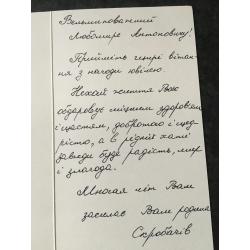 Вельмишановний
Любомире Антоновичу!
Прийміть щирі вітан-
ня з нагоди ювілею.
Нехай життя Вас
обдаровує міцним здоровям
і щастям, добротою і щед-
рістю, а в рідній хаті
завжди буде радість, мир
і злагода.
Многая літ Вам
засилає Вам родина
Скробачів